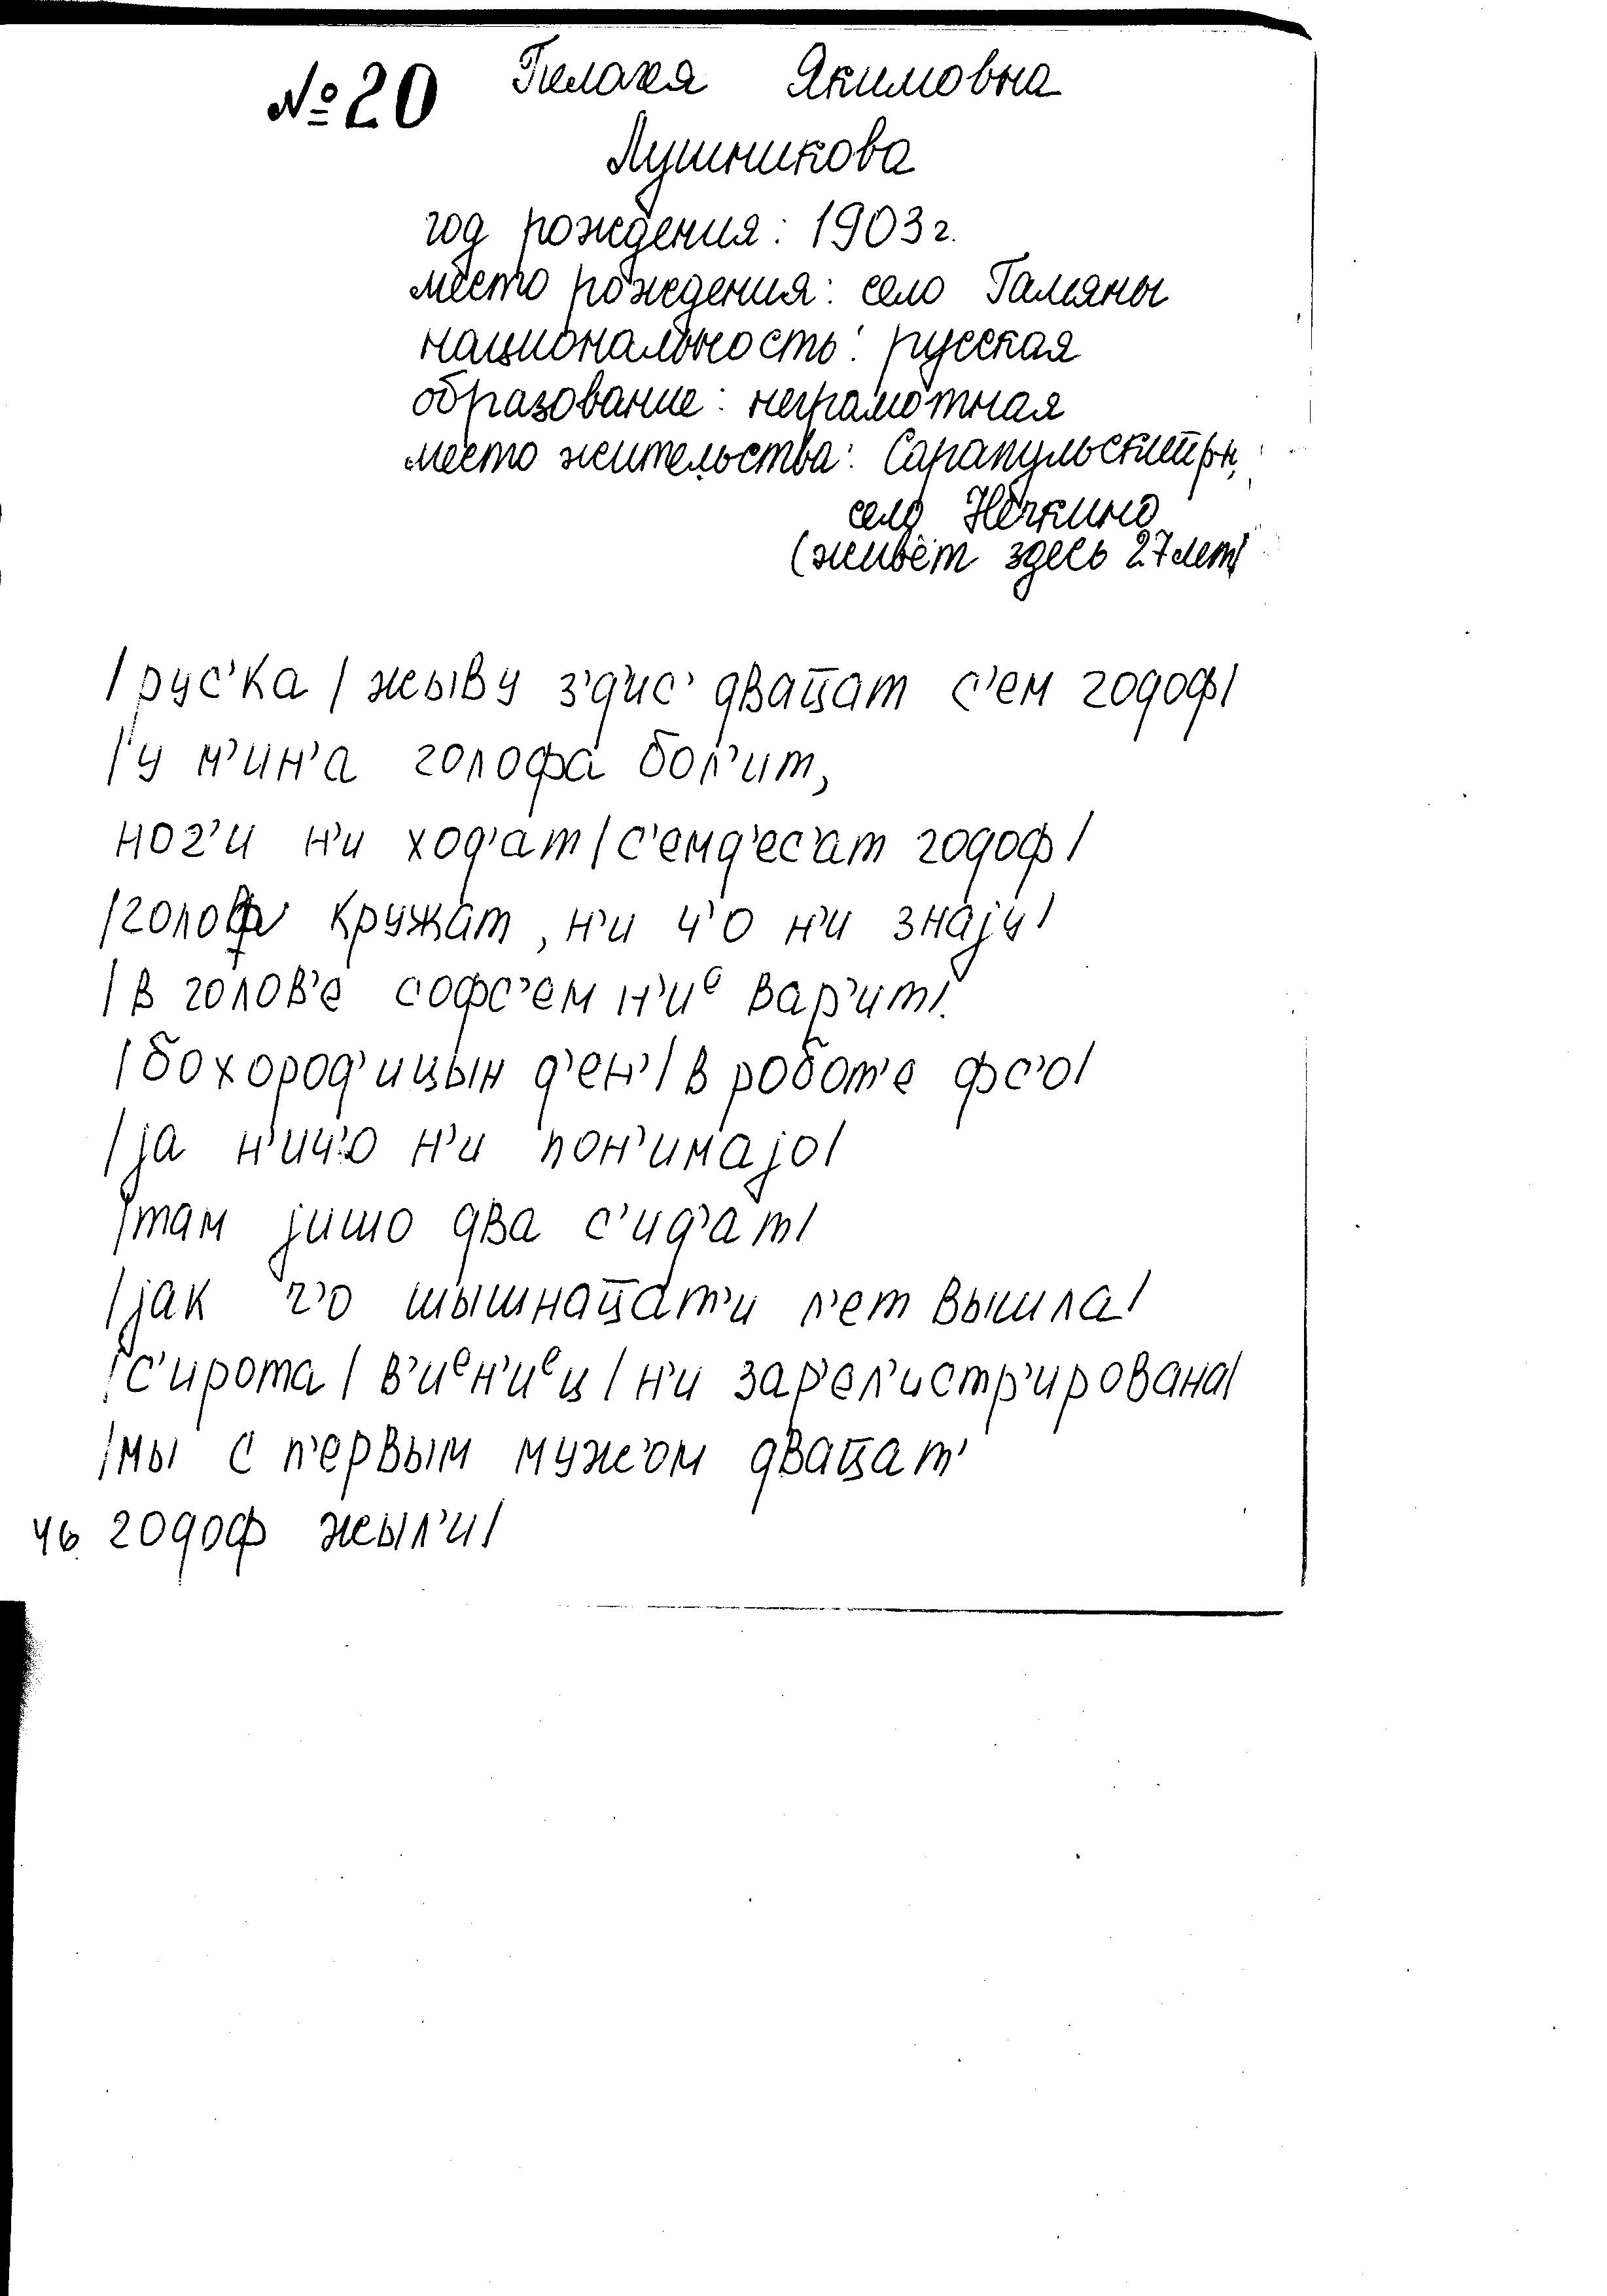 №20 Якимовна
Лушникова
год рождения: 1903 г.
место рождения: село Гальяны
национальность: русская
образование: неграмотная
место жительства: Сарапульский рн,
село Нечкино
(живёт здесь 27 лет)
/рус'ка / жыву з'д'ис' двац̅ат с'ем годоф/
/у м'ин'а голофа бол'ит,
ног'и н'и ход'ат / с'емд'ес'ат годоф/
/ кружат, н'и ч'о н'и знаjу/
/в голов'е софс'ем н'иᵉ вар'ит/
/бохород'ицын д'ен'/ в робот'е фс'о/
/jа н'ич'о н'и пон'имаjо/
/там jишо два с'ид'ат/
/jак ч'о шышнац̅ат'и л'ет вышла/
/с'ирота / в'иᵉн'иᵉц / н'и зар'ел'истр'ирована/
/мы с п'ервым муж'ом двац̅ат'
46. годоф жыл'и/